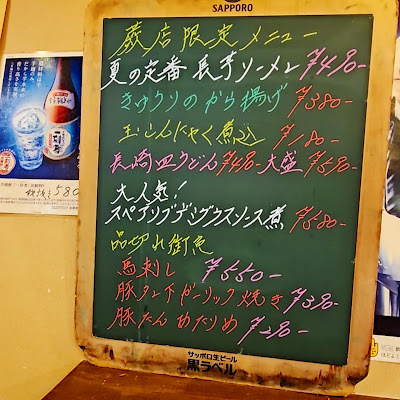 SAPPORO
蕨店限定メニュー
夏の定番 長芋ソーメン ¥490-
きゅうりのから揚げ ¥380-
玉こんにゃく煮込 ¥180-
長崎皿うどん ¥490- 大盛 ¥590-
大人気!
スペアリブデミグラスソース煮 ¥580-
品切れ御免
馬刺し ¥550-
豚タン下ガーリック焼き ¥390-
豚たんめたりめ ¥290-
サッポロ生ビール
黒ラベル
580